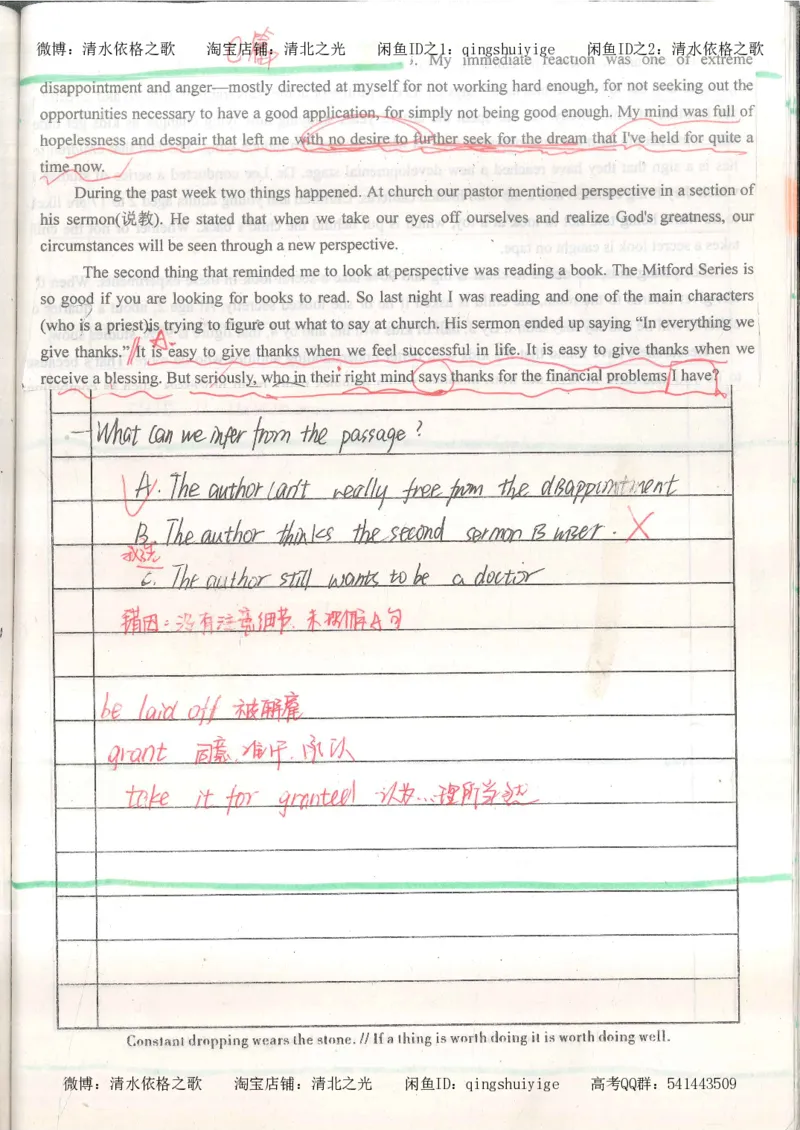 微博：清水依格之歌 淘宝店铺：清北之光 闲鱼ID之1：qingshuiyige 闲鱼ID之2：清水依格之歌
B篇
My immediate reaction was one of extreme
disappointment and anger—mostly directed at myself for not working hard enough, for not seeking out the
opportunities necessary to have a good application, for simply not being good enough. My mind was full of
hopelessness and despair that left me with no desire to further seek for the dream that I've held for quite a
time now.
During the past week two things happened. At church our pastor mentioned perspective in a section of
his sermon(说教). He stated that when we take our eyes off ourselves and realize God's greatness, our
circumstances will be seen through a new perspective.
The second thing that reminded me to look at perspective was reading a book. The Mitford Series is
so good if you are looking for books to read. So last night I was reading and one of the main characters
(who is a priest)is trying to figure out what to say at church. His sermon ended up saying “In everything we
A.
give thanks.” It is easy to give thanks when we feel successful in life. It is easy to give thanks when we
receive a blessing. But seriously, who in their right mind says thanks for the financial problems I have?
一 What can we infer from the passage?
A. The author can't really free from the disappointment
B. The author thinks the second sermon is wiser.
我选
C. The author still wants to be a doctor
错因：没有注意细节，未理解A句
be laid off 被解雇
grant 同意，准许，承认
take it for granted 认为…理所当然
Constant dropping wears the stone. // If a thing is worth doing it is worth doing well.
微博：清水依格之歌 淘宝店铺：清北之光 闲鱼ID：qingshuiyige 高考QQ群：541443509